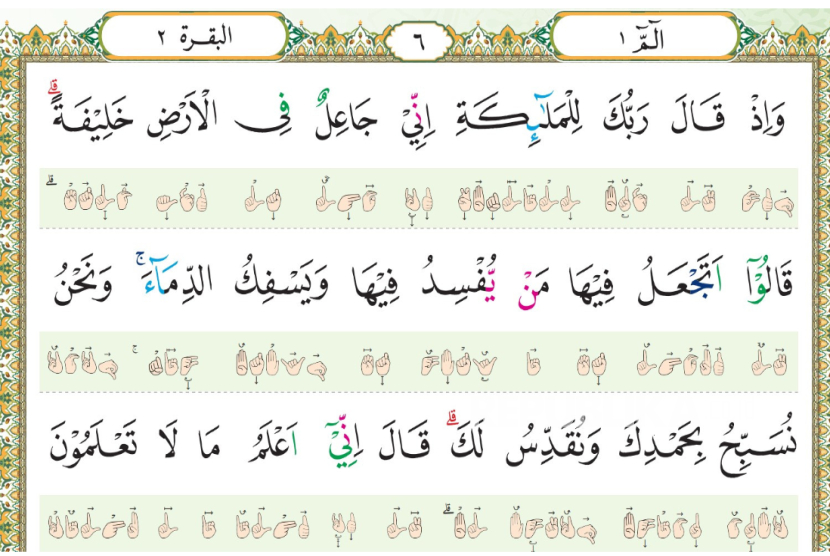 الٓمّٓ ١
٦
البقرة ٢
وَاِذْ قَالَ رَبُّكَ لِلْمَلٰٓئِكَةِ اِنِّيْ جَاعِلٌ فِى الْاَرْضِ خَلِيْفَةً ؕ
قَالُوْٓا اَتَجْعَلُ فِيْهَا مَنْ يُّفْسِدُ فِيْهَا وَيَسْفِكُ الدِّمَآءَ ۚ وَنَحْنُ
نُسَبِّحُ بِحَمْدِكَ وَنُقَدِّسُ لَكَ ؕ قَالَ اِنِّيْٓ اَعْلَمُ مَا لَا تَعْلَمُوْنَ